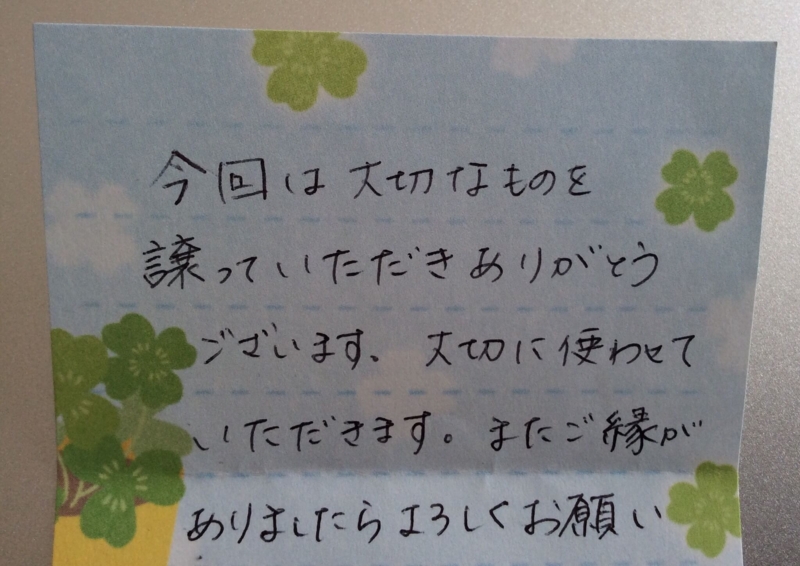 今回は大切なものを
譲っていただきありがとう
ございます、大切に使わせて
いただきます。またご縁が
ありましたらよろしくお願い